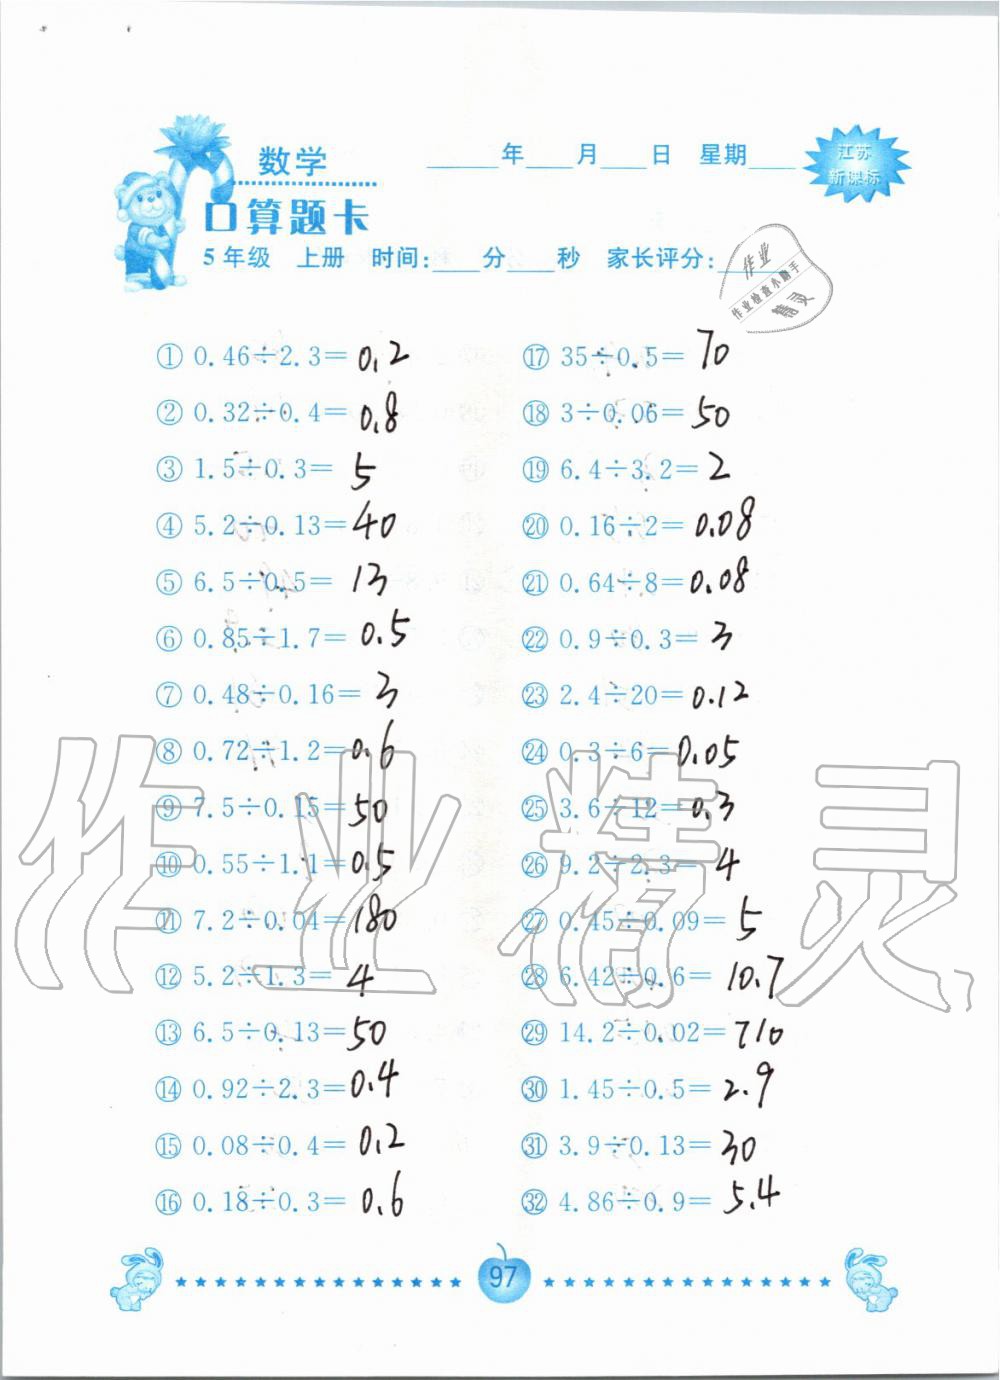 数学
____年____月____日 星期____
江苏
新课标
口算题卡
5年级 上册 时间:____分____秒 家长评分:____
作业
作业检查小助手
精灵
① 0.46÷2.3=0.2
② 0.32÷0.4=0.8
③ 1.5÷0.3=5
④ 5.2÷0.13=40
⑤ 6.5÷0.5=13
⑥ 0.85÷1.7=0.5
⑦ 0.48÷0.16=3
⑧ 0.72÷1.2=0.6
⑨ 7.5÷0.15=50
⑩ 0.55÷1.1=0.5
⑪ 7.2÷0.04=180
⑫ 5.2÷1.3=4
⑬ 6.5÷0.13=50
⑭ 0.92÷2.3=0.4
⑮ 0.08÷0.4=0.2
⑯ 0.18÷0.3=0.6
⑰ 35÷0.5=70
⑱ 3÷0.06=50
⑲ 6.4÷3.2=2
⑳ 0.16÷2=0.08
㉑ 0.64÷8=0.08
㉒ 0.9÷0.3=3
㉓ 2.4÷20=0.12
㉔ 0.3÷6=0.05
㉕ 3.6÷12=0.3
㉖ 9.2÷2.3=4
㉗ 0.45÷0.09=5
㉘ 6.42÷0.6=10.7
㉙ 14.2÷0.02=710
㉚ 1.45÷0.5=2.9
㉛ 3.9÷0.13=30
㉜ 4.86÷0.9=5.4
作业精灵
97